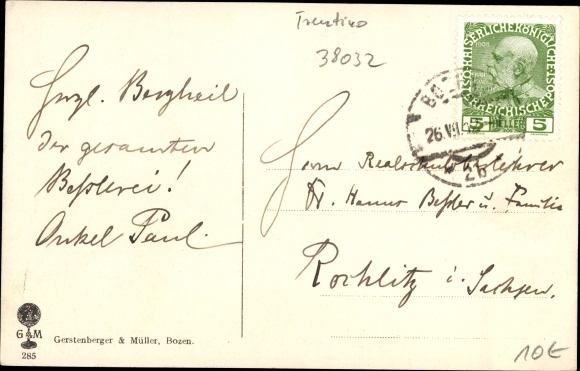 Trentino
38032
Herzl. Bergheil
der gesamten
Beßlerei!
Onkel Paul.
KAISERLICHE KÖNIGLICHE
OESTERREICHISCHE POST
1908
5 HELLER 5
26.VII
Herrn Realschuloberlehrer
Dr. Hanns Beßler u. Familie
Rochlitz i. Sachsen.
G M
285
Gerstenberger & Müller, Bozen.
10€